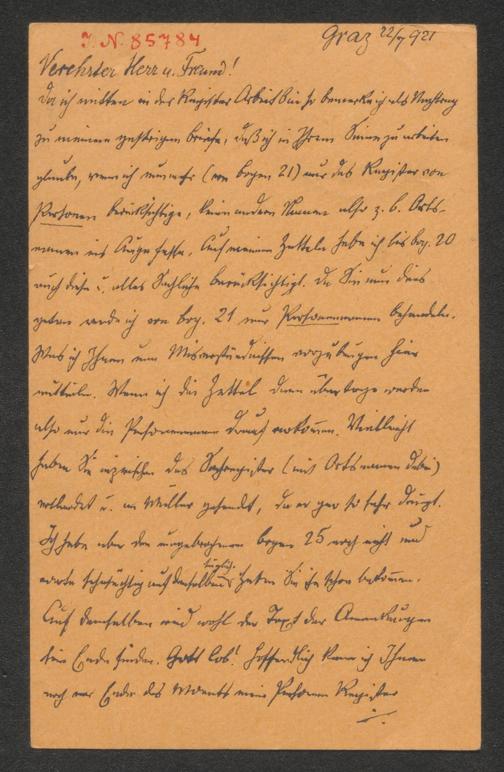 J. N. 85784
Graz 22/V 921
Verehrter Herr u. Freund!
Da ich mitten in der Register Arbeit bin so bemerke ich als Nachtrag
zu meinem gestrigen Briefe, daß ich in Ihrem Sinne zu arbeiten
glaube, wenn ich nunmehr (von Bogen 21) nur das Register von
Personen berücksichtige, keine andern Namen also z. B. Orts-
namen ins Auge fasse. Auf meinen Zetteln habe ich bis Bog. 20
auch diese u. alles Sachliche berücksichtigt. Da Sie nun dies
geben werde ich von Bog. 21 nur Personennamen behandeln.
Was ich Ihnen um Missverständnissen vorzubeugen hier
mitteile. Wenn ich die Zettel dann übertrage werden
also nur die Personennamen darauf vorkommen. Vielleicht
haben Sie inzwischen das Sachregister (mit Ortsnamen dabei)
vollendet u. an Müller gesendet, da er gar so sehr drängt.
Ich habe aber den umgebrochenen Bogen 25 noch nicht und
warte sehnsüchtig auf denselben täglich. Haben Sie ihn schon bekommen.
Auf demselben wird wohl der Text der Anmerkungen
sein Ende finden. Gott lob! Hoffentlich kann ich Ihnen
noch vor Ende des Monats mein Personen Register